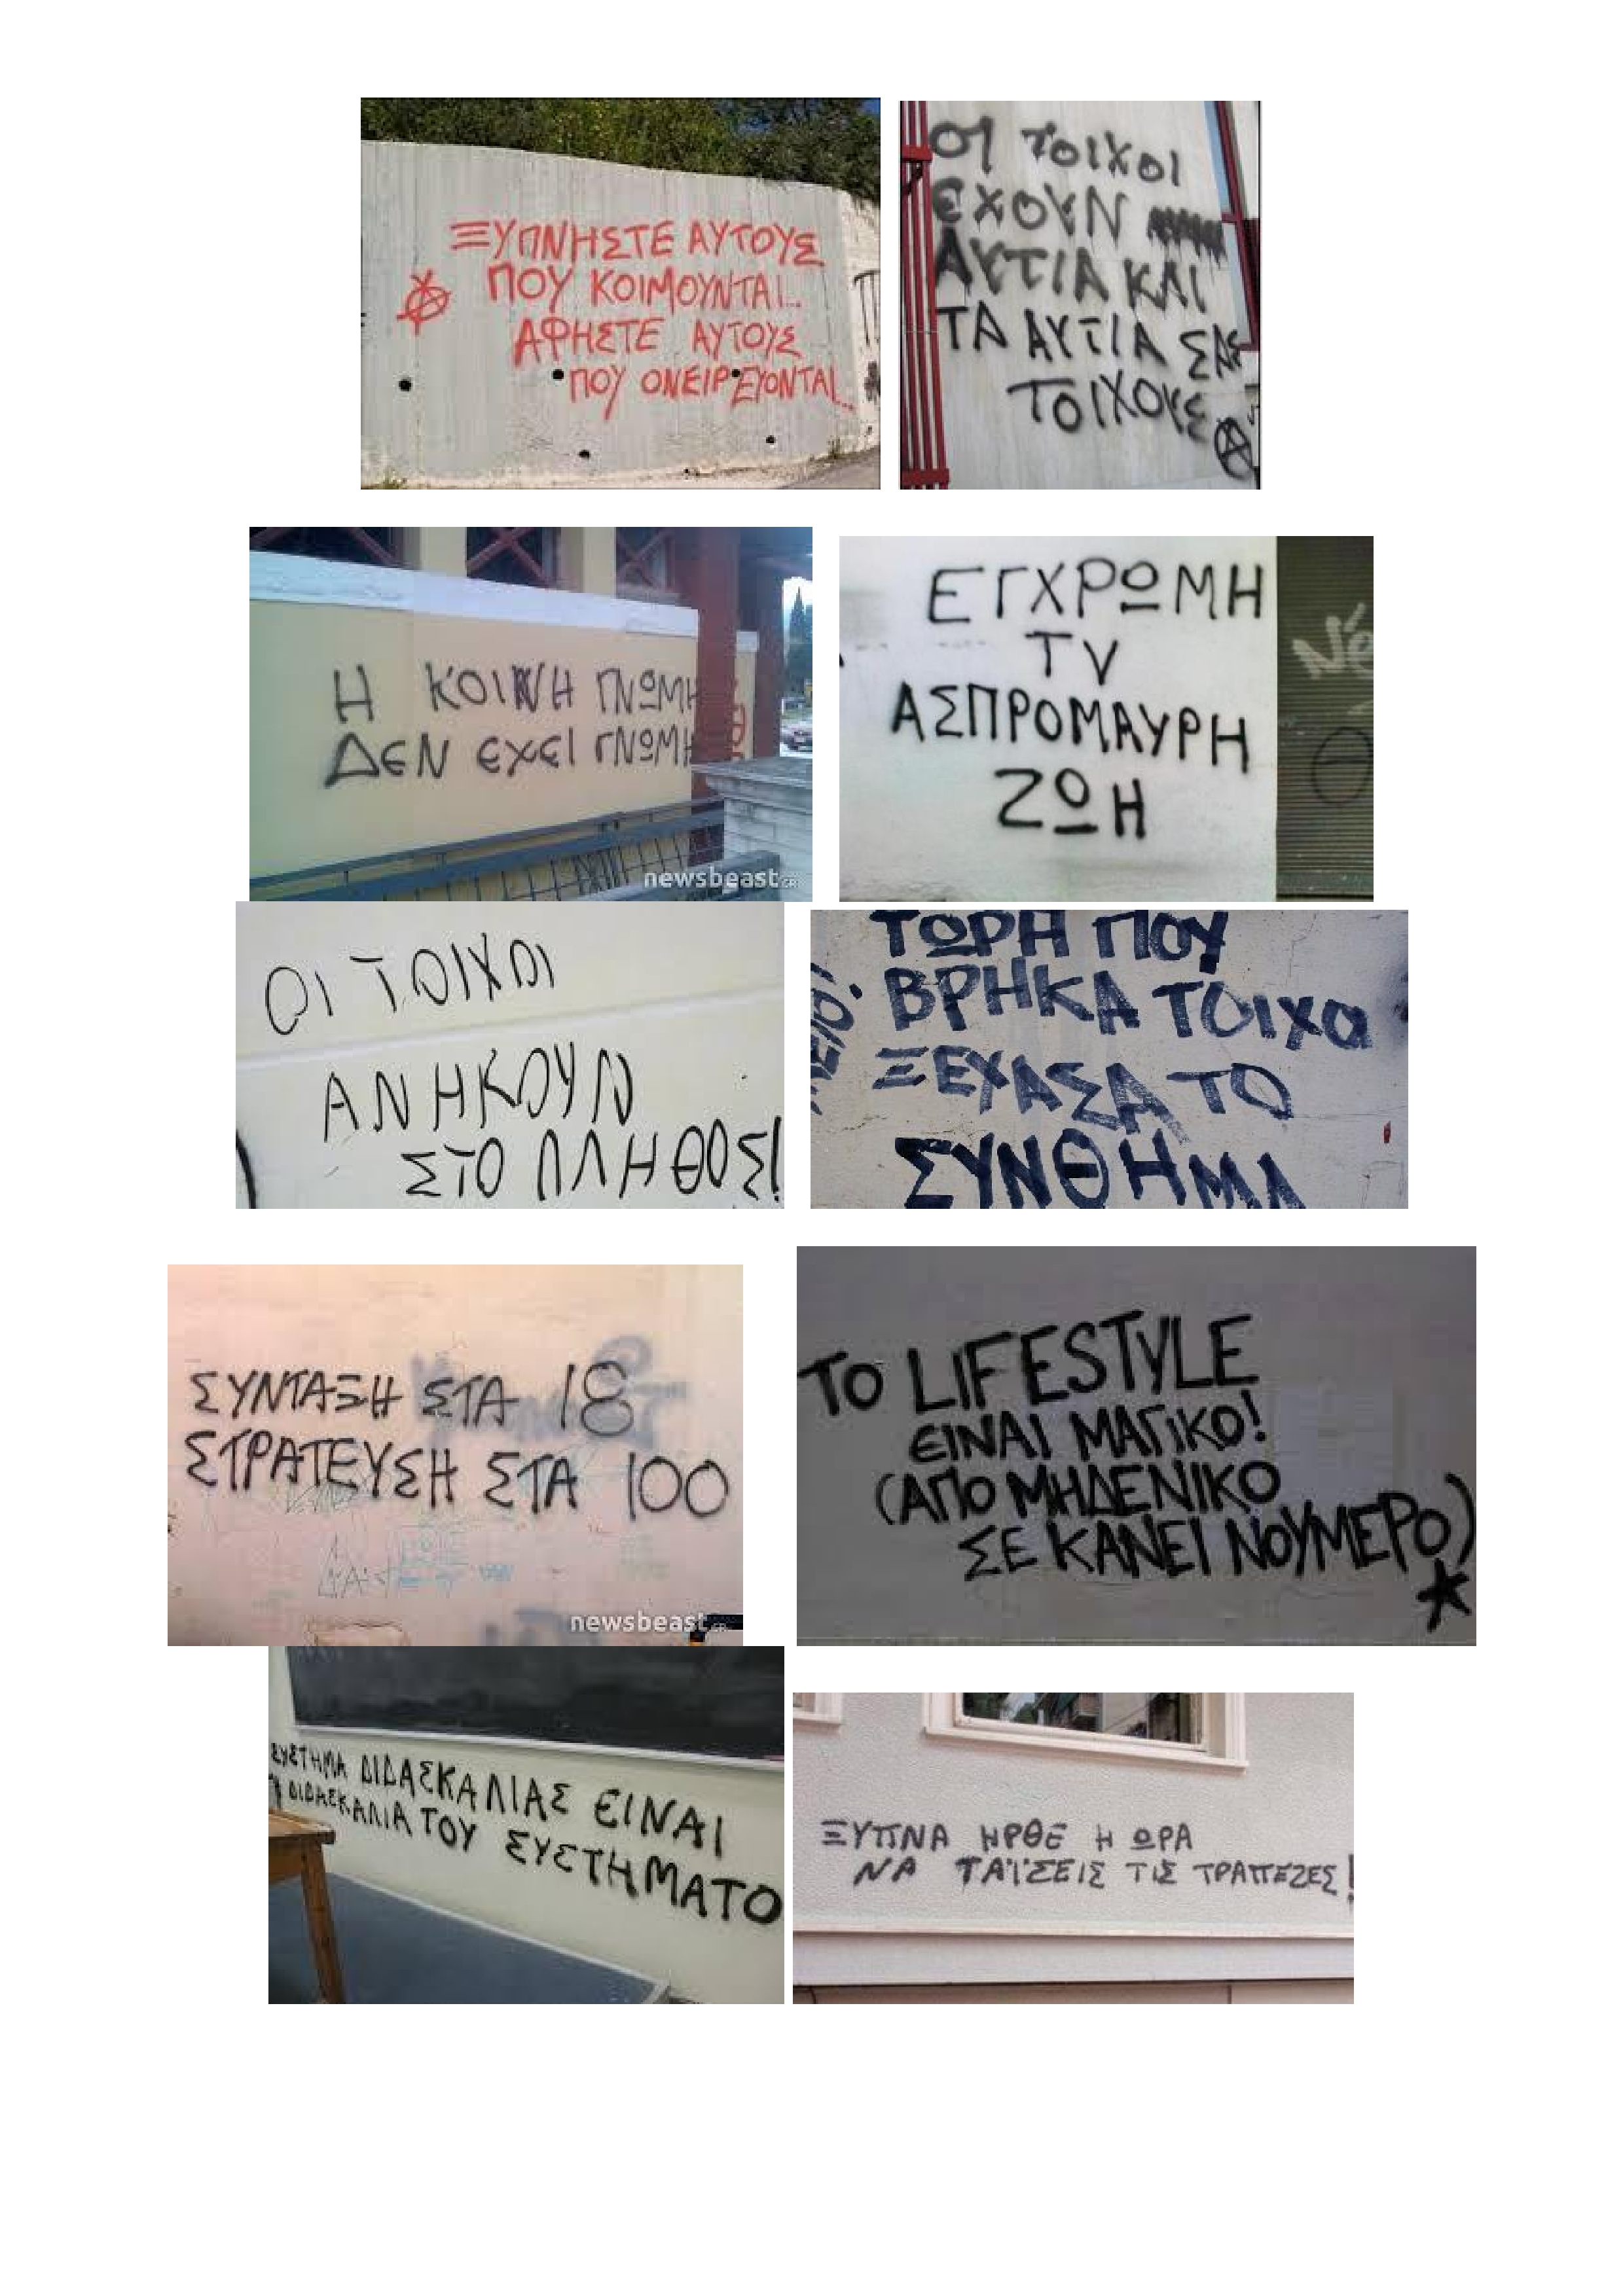 ΞΥΠΝΗΣΤΕ ΑΥΤΟΥΣ
ΠΟΥ ΚΟΙΜΟΥΝΤΑΙ...
ΑΦΗΣΤΕ ΑΥΤΟΥΣ
ΠΟΥ ΟΝΕΙΡΕΥΟΝΤΑΙ...
ΟΙ ΤΟΙΧΟΙ
ΕΧΟΥΝ
ΑΥΤΙΑ ΚΑΙ
ΤΑ ΑΥΤΙΑ ΣΑΣ
ΤΟΙΧΟΥΣ
Η ΚΟΙΝΗ ΓΝΩΜΗ
ΔΕΝ ΕΧΕΙ ΓΝΩΜΗ
newsbeast.GR
ΕΓΧΡΩΜΗ
TV
ΑΣΠΡΟΜΑΥΡΗ
ΖΩΗ
Νέ
ΟΙ ΤΟΙΧΟΙ
ΑΝΗΚΟΥΝ
ΣΤΟ ΠΛΗΘΟΣ!
ΤΩΡΗ ΠΟΥ
ΒΡΗΚΑ ΤΟΙΧΟ
ΞΕΧΑΣΑ ΤΟ
ΣΥΝΘΗΜΑ
ΣΥΝΤΑΞΗ ΣΤΑ 18
ΣΤΡΑΤΕΥΣΗ ΣΤΑ 100
newsbeast.GR
ΤΟ LIFESTYLE
ΕΙΝΑΙ ΜΑΓΙΚΟ!
(ΑΠΟ ΜΗΔΕΝΙΚΟ
ΣΕ ΚΑΝΕΙ ΝΟΥΜΕΡΟ)
ΣΥΣΤΗΜΑ ΔΙΔΑΣΚΑΛΙΑΣ ΕΙΝΑΙ
Η ΔΙΔΑΣΚΑΛΙΑ ΤΟΥ ΣΥΣΤΗΜΑΤΟ
ΞΥΠΝΑ ΗΡΘΕ Η ΩΡΑ
ΝΑ ΤΑΪΣΕΙΣ ΤΙΣ ΤΡΑΠΕΖΕΣ!